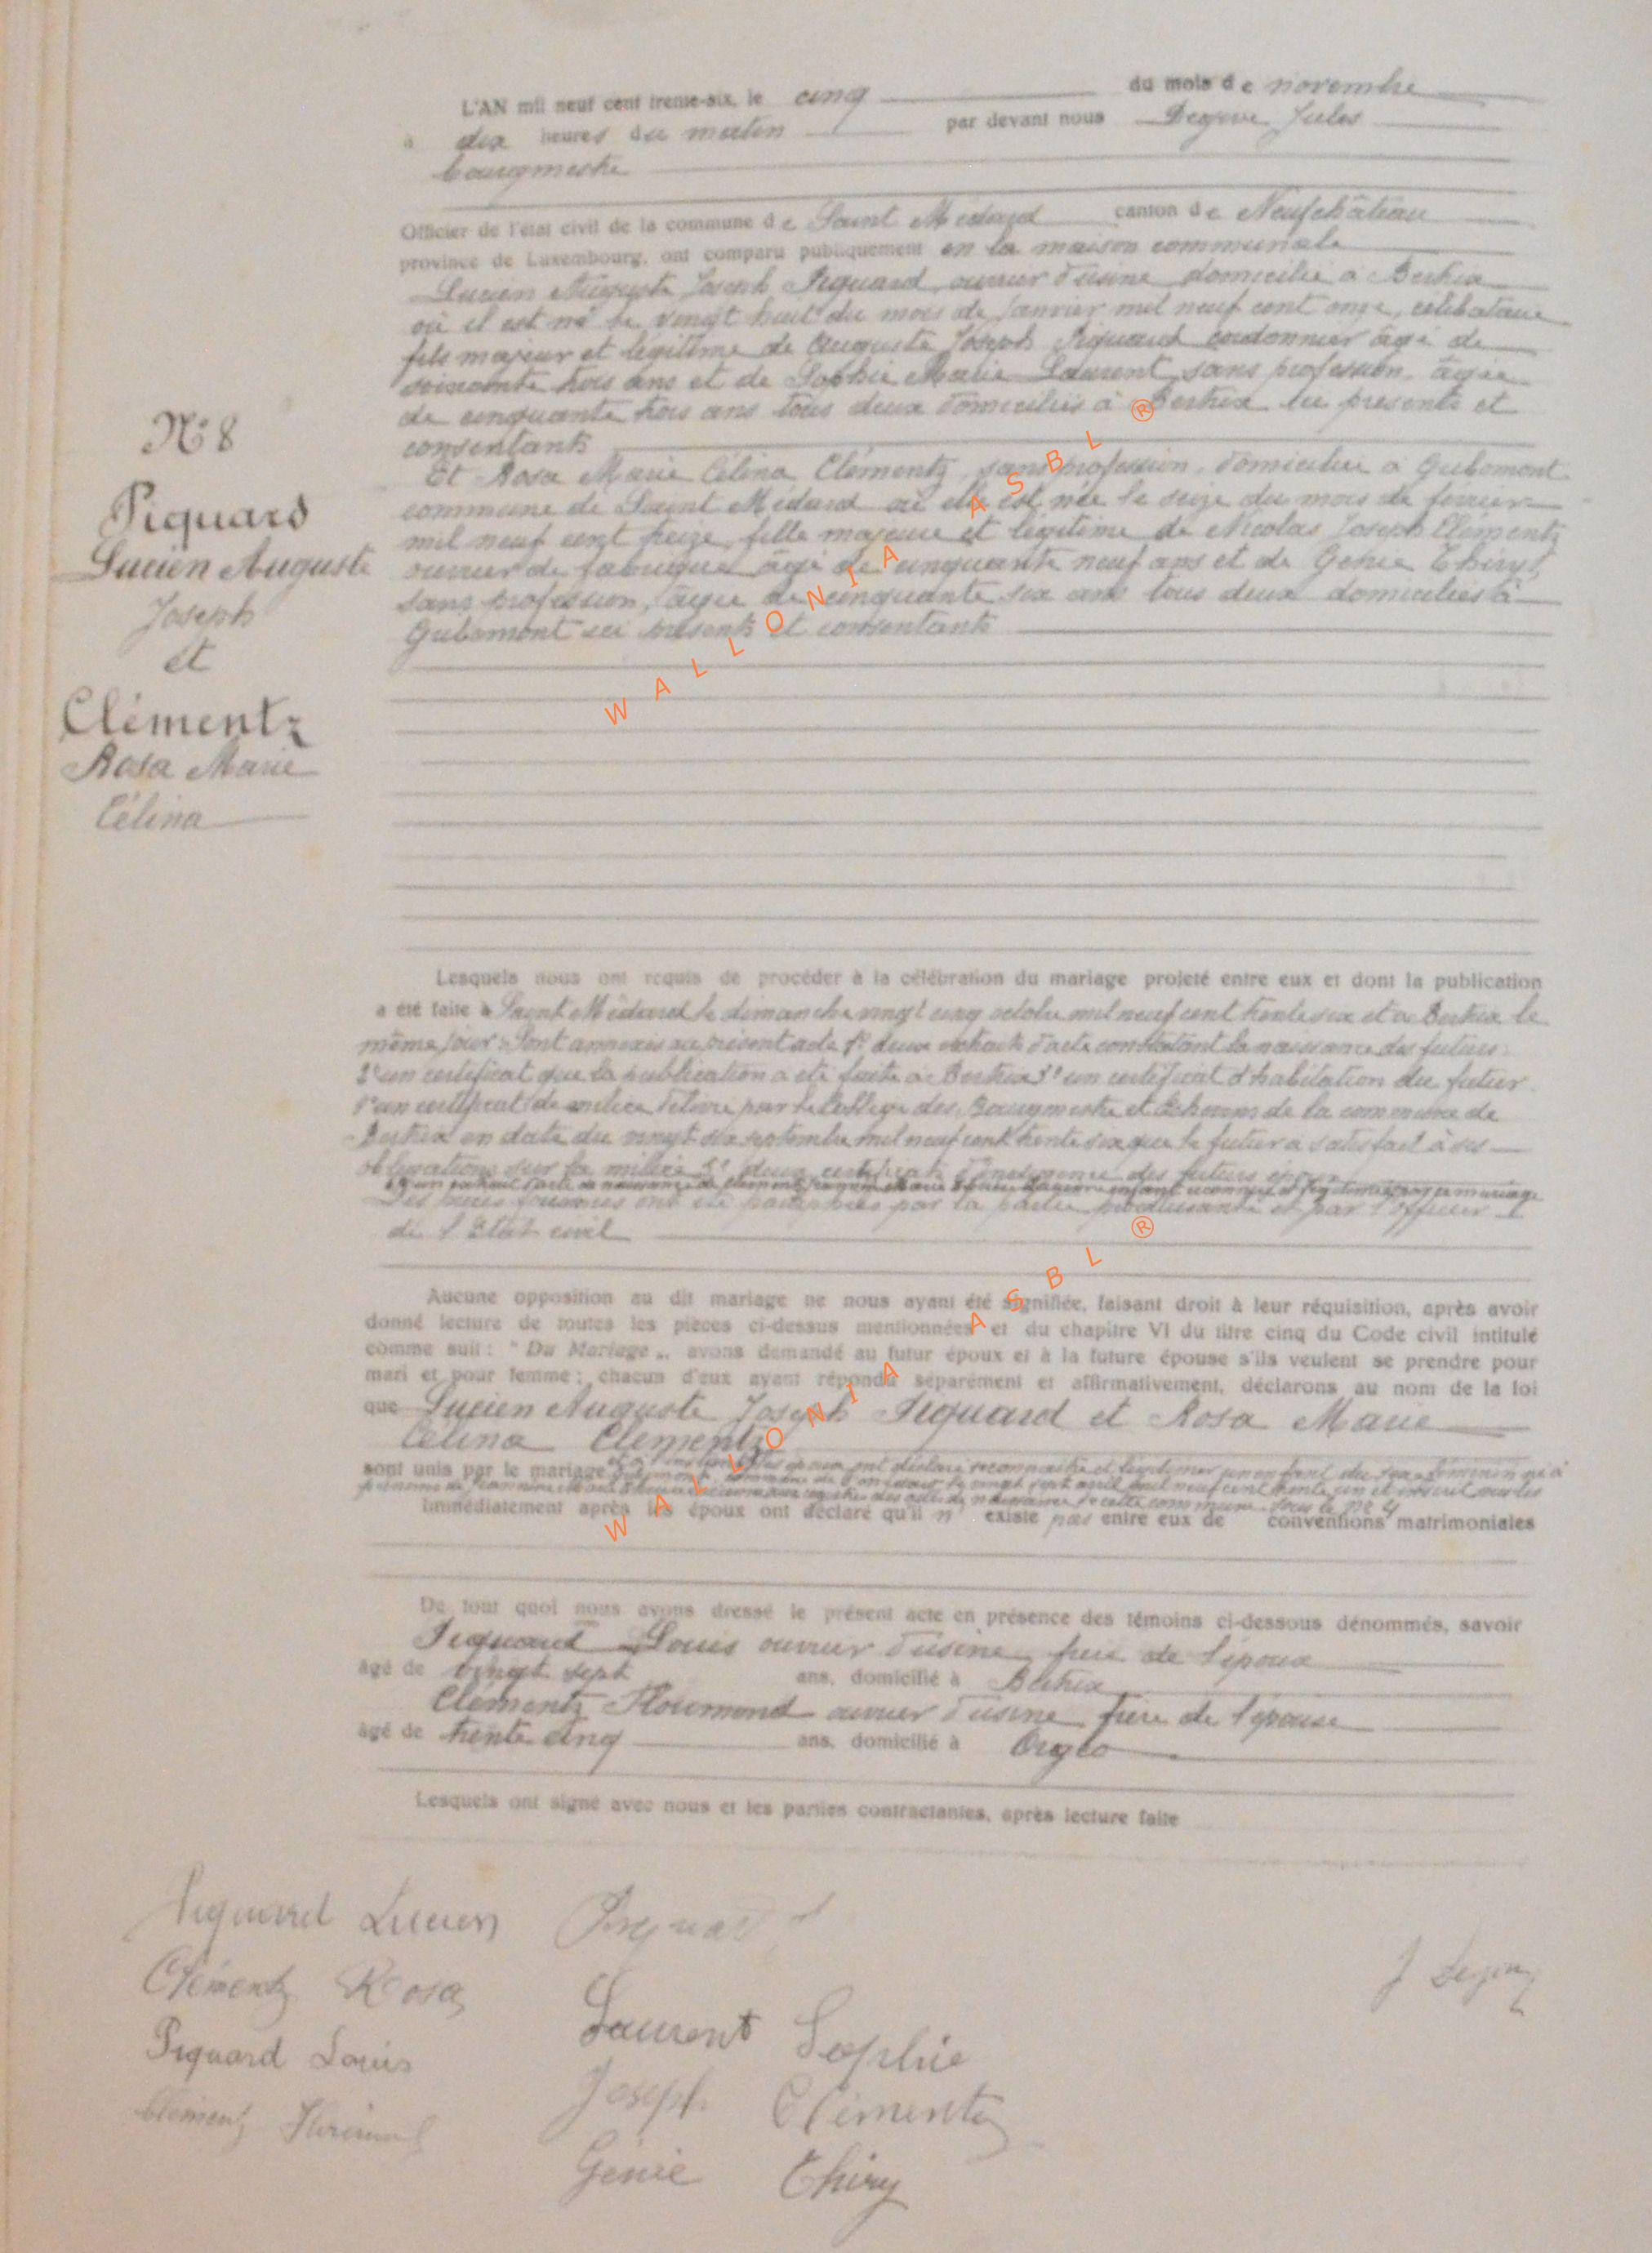 L'AN mil neuf cent trente-six, le cinq du mois de novembre
à dix heures du matin par devant nous Degive Jules
bourgmestre
Officier de l'état civil de la commune de Saint Médard canton de Neufchâteau
province de Luxembourg, ont comparu publiquement en la maison communale
Lucien Auguste Joseph Piquard, ouvrier d'usine domicilié à Bertrix
où il est né le vingt huit du mois de Janvier mil neuf cent onze, célibataire
fils majeur et légitime de Auguste Joseph Piquard cordonnier âgé de
soixante trois ans et de Sophie Marie Laurent, sans profession, âgée
de cinquante trois ans tous deux domiciliés à Bertrix ici présents et
consentants
Et Rosa Marie Célina Clémentz, sans profession, domiciliée à Gribomont
commune de Saint Médard où elle est née le seize du mois de février
mil neuf cent treize, fille majeure et légitime de Nicolas Joseph Clementz
ouvrier de fabrique âgé de cinquante neuf ans et de Génie Thiry,
sans profession, âgée de cinquante six ans tous deux domiciliés à
Gribomont ici présents et consentants
N° 8
Piquard
Lucien Auguste
Joseph
et
Clémentz
Rosa Marie
Célina
Lesquels nous ont requis de procéder à la célébration du mariage projeté entre eux et dont la publication
a été faite à Saint Médard le dimanche vingt cinq octobre mil neuf cent trente six et à Bertrix le
même jour. Sont annexés au présent acte 1° deux extraits d'acte constatant la naissance des futurs
2° un certificat que la publication a été faite à Bertrix 3° un certificat d'habitation du futur
un certificat de milice délivré par le Collège des Bourgmestre et Echevins de la commune de
Bertrix en date du vingt six septembre mil neuf cent trente six que le futur a satisfait à ses
obligations sur la milice 5° deux certificats des futurs époux
un extrait d'acte de naissance de
Les pièces fournies ont été paraphées par la partie produisante et par l'officier
de l'Etat civil
Aucune opposition au dit mariage ne nous ayant été signifiée, faisant droit à leur réquisition, après avoir
donné lecture de toutes les pièces ci-dessus mentionnées et du chapitre VI du titre cinq du Code civil intitulé
comme suit : " Du Mariage ", avons demandé au futur époux et à la future épouse s'ils veulent se prendre pour
mari et pour femme ; chacun d'eux ayant répondu séparément et affirmativement, déclarons au nom de la loi
que Lucien Auguste Joseph Piquard et Rosa Marie
Célina Clementz
sont unis par le mariage et à l'instant les époux ont déclaré reconnaître et légitimer un enfant du sexe féminin né à
Gribomont, commune de Saint Médard le vingt sept avril mil neuf cent trente un et inscrit sur les
registres des actes de naissance de cette commune sous le N° 4
Immédiatement après les époux ont déclaré qu'il n'existe pas entre eux de conventions matrimoniales
De tout quoi nous avons dressé le présent acte en présence des témoins ci-dessous dénommés, savoir
Piquard Louis ouvrier d'usine, frère de l'époux
âgé de vingt sept ans, domicilié à Bertrix
Clementz Florimond ouvrier d'usine frère de l'épouse
âgé de trente cinq ans, domicilié à Orgeo
Lesquels ont signé avec nous et les parties contractantes, après lecture faite
Piquard Lucien Piquard
Clémentz Rosa
Laurent Sophie
Piquard Louis
Joseph Clémentz
Clémentz Florimond
Génie Thiry
WALLONIA ASBL ®
WALLONIA ASBL ®